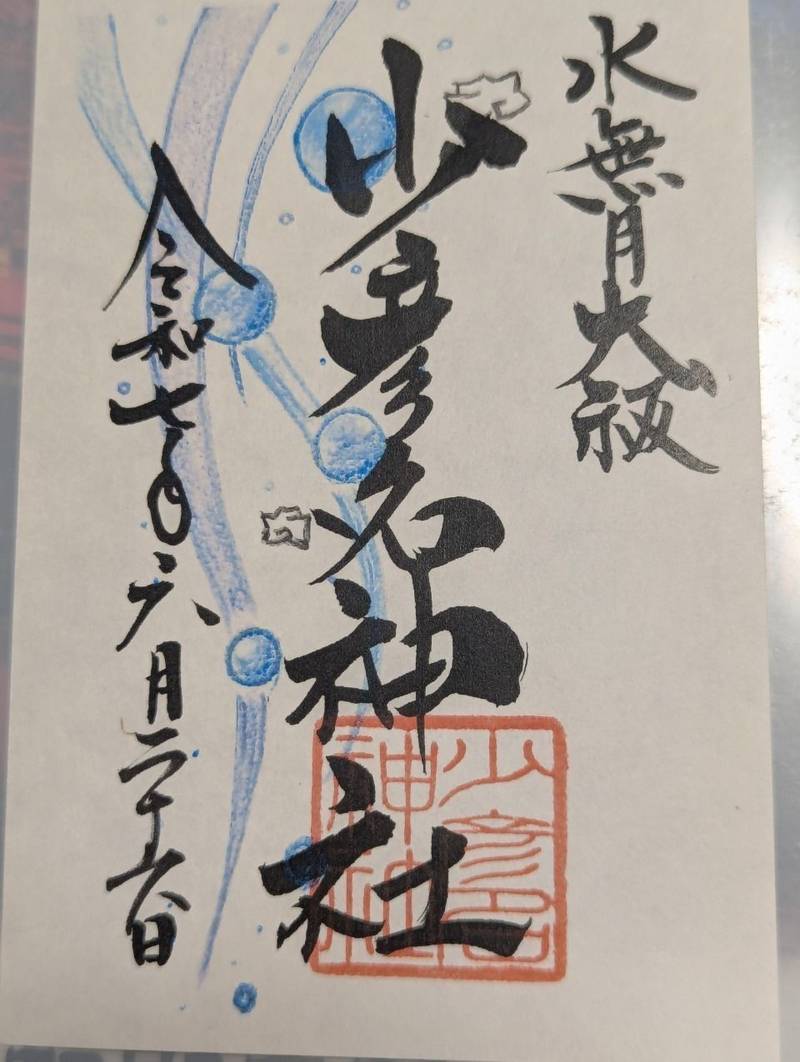 水無月大祓
少彦名神社
令和七年六月二十六日
少彦名
神社